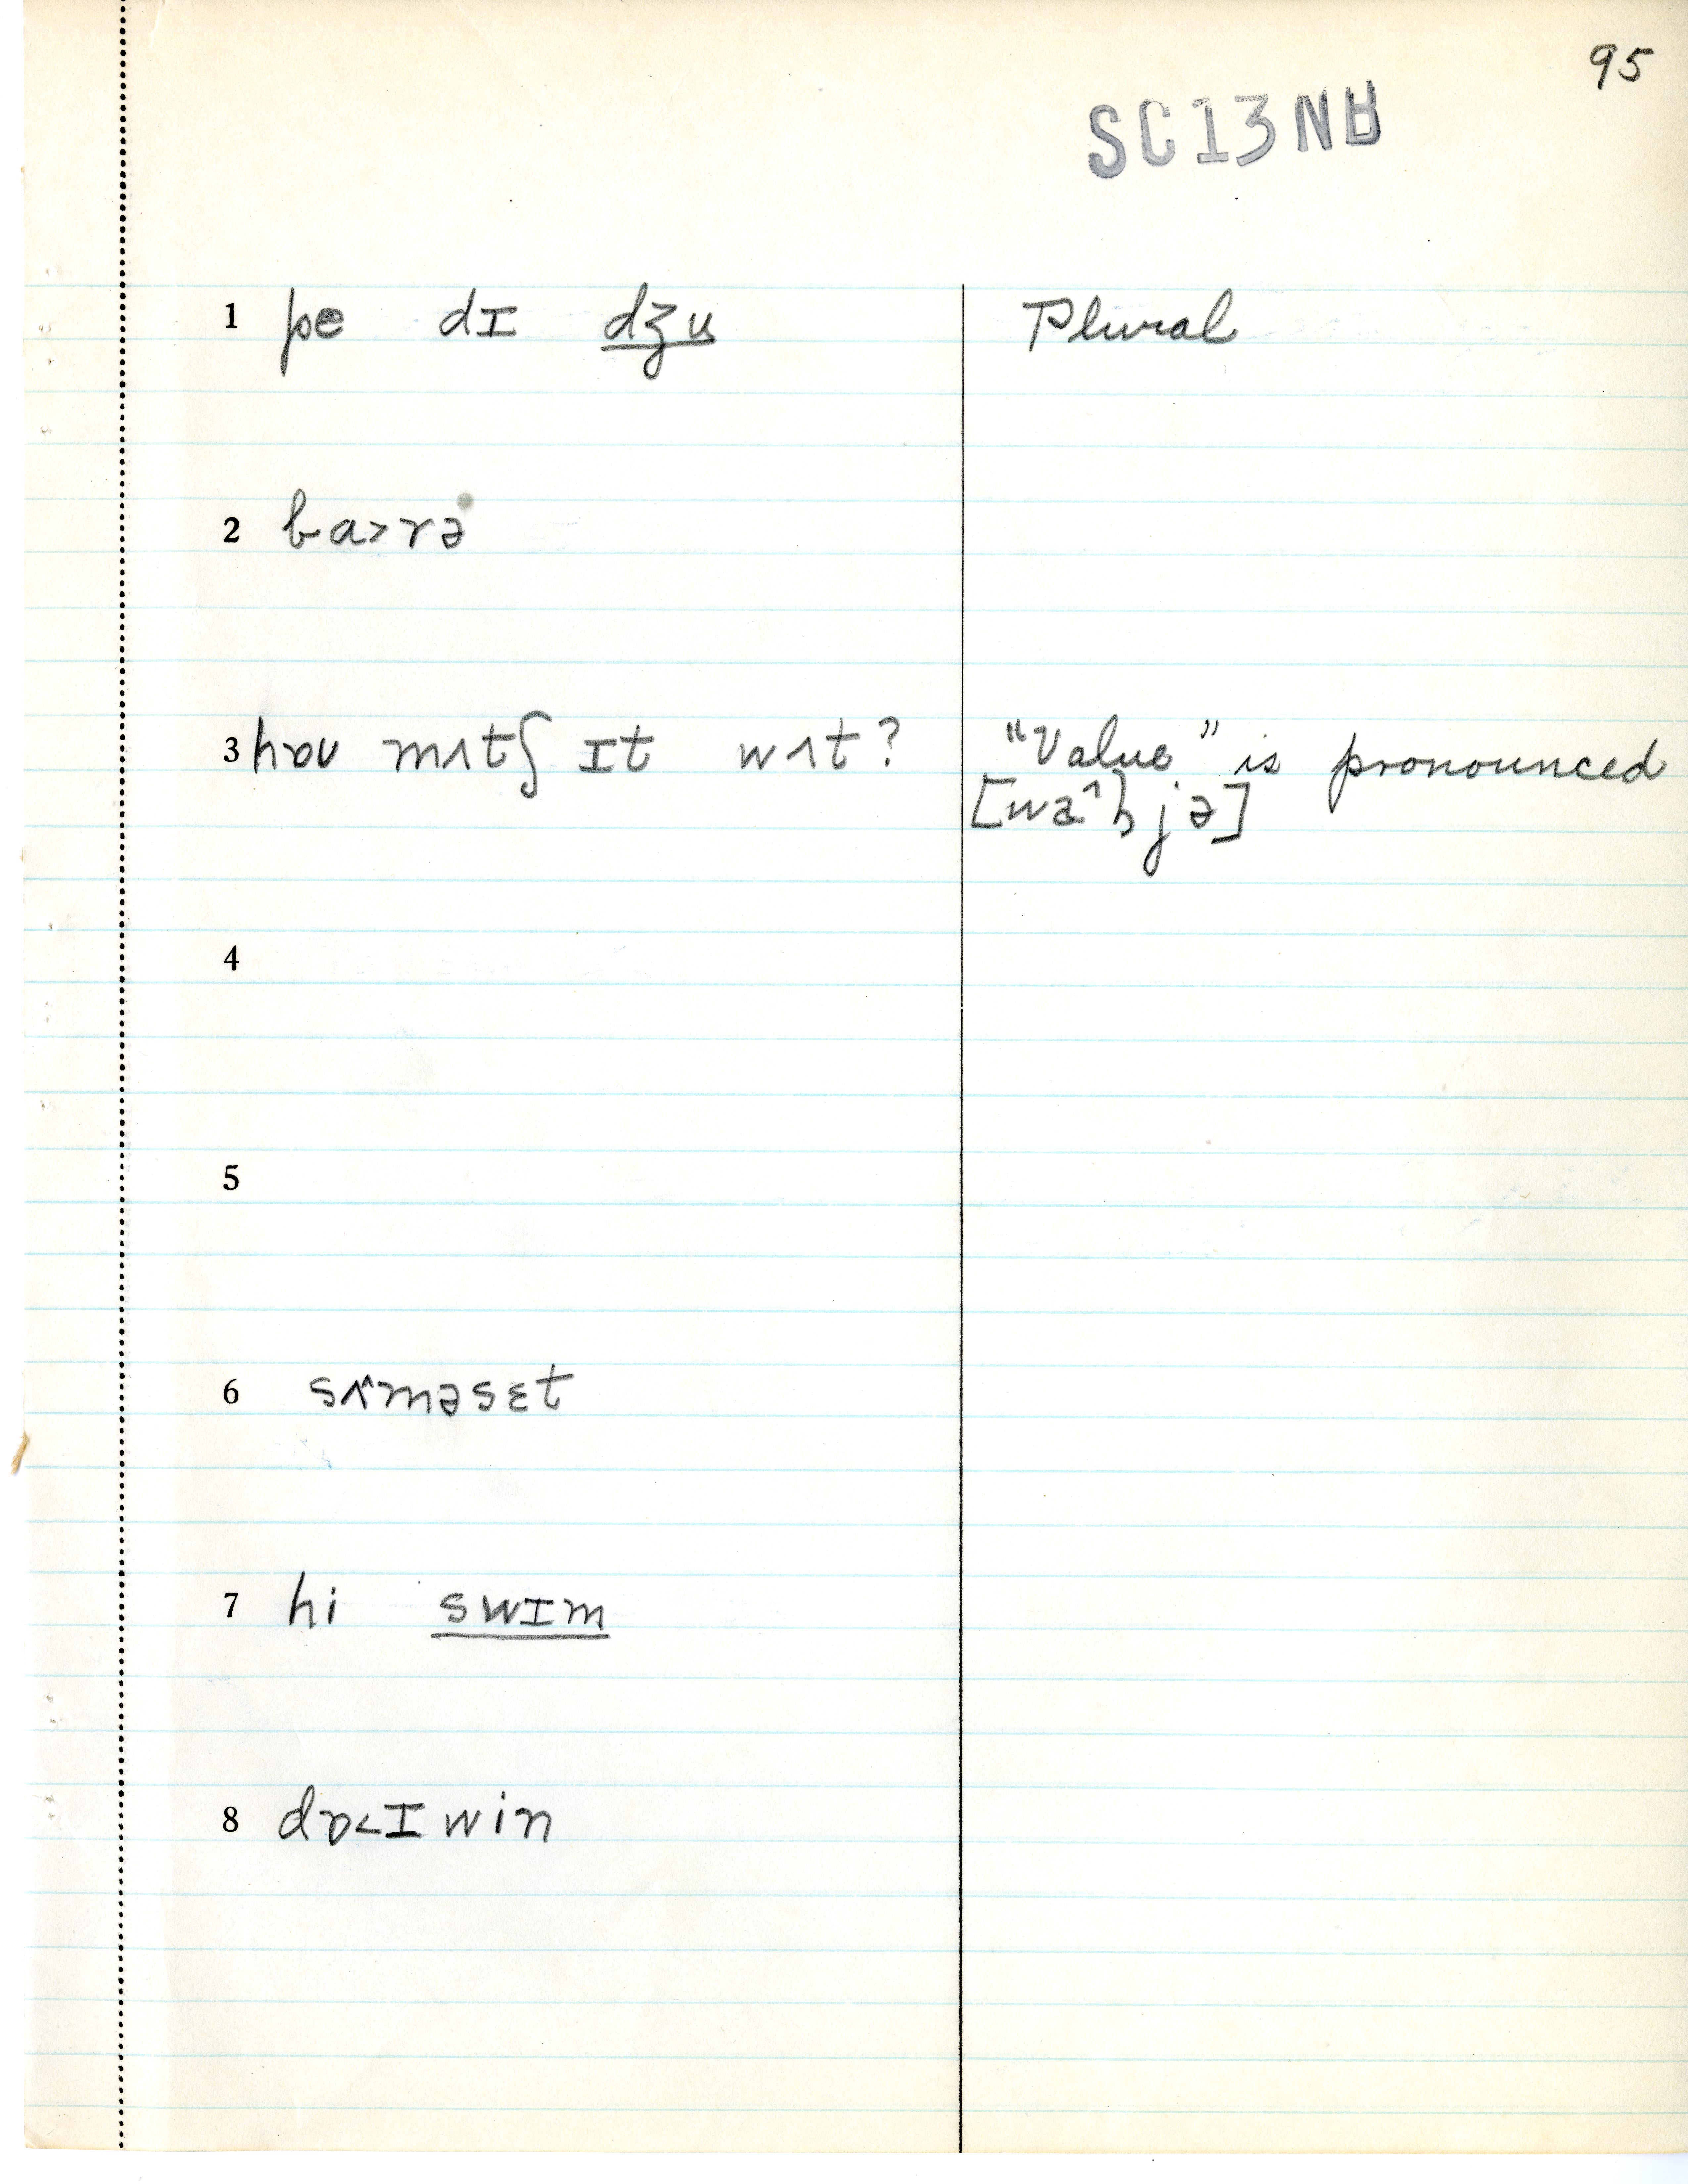 95
SC13NB
1 pe dɪ dʒu Plural
2 ba>rə
3 hɒu mʌtʃ ɪt wʌt? "Value" is pronounced
[wa^ljə]
4
5
6 sʌ^məsɛt
7 hi swɪm
8 dɒ<ɪwin